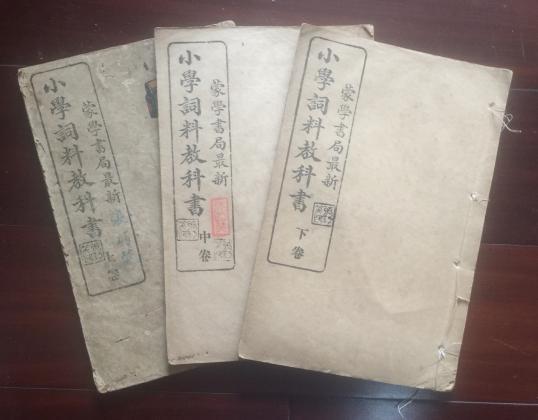 蒙學書局最新
小學詞料教科書
上卷
蒙學書局最新
小學詞料教科書
中卷
蒙學書局最新
小學詞料教科書
下卷